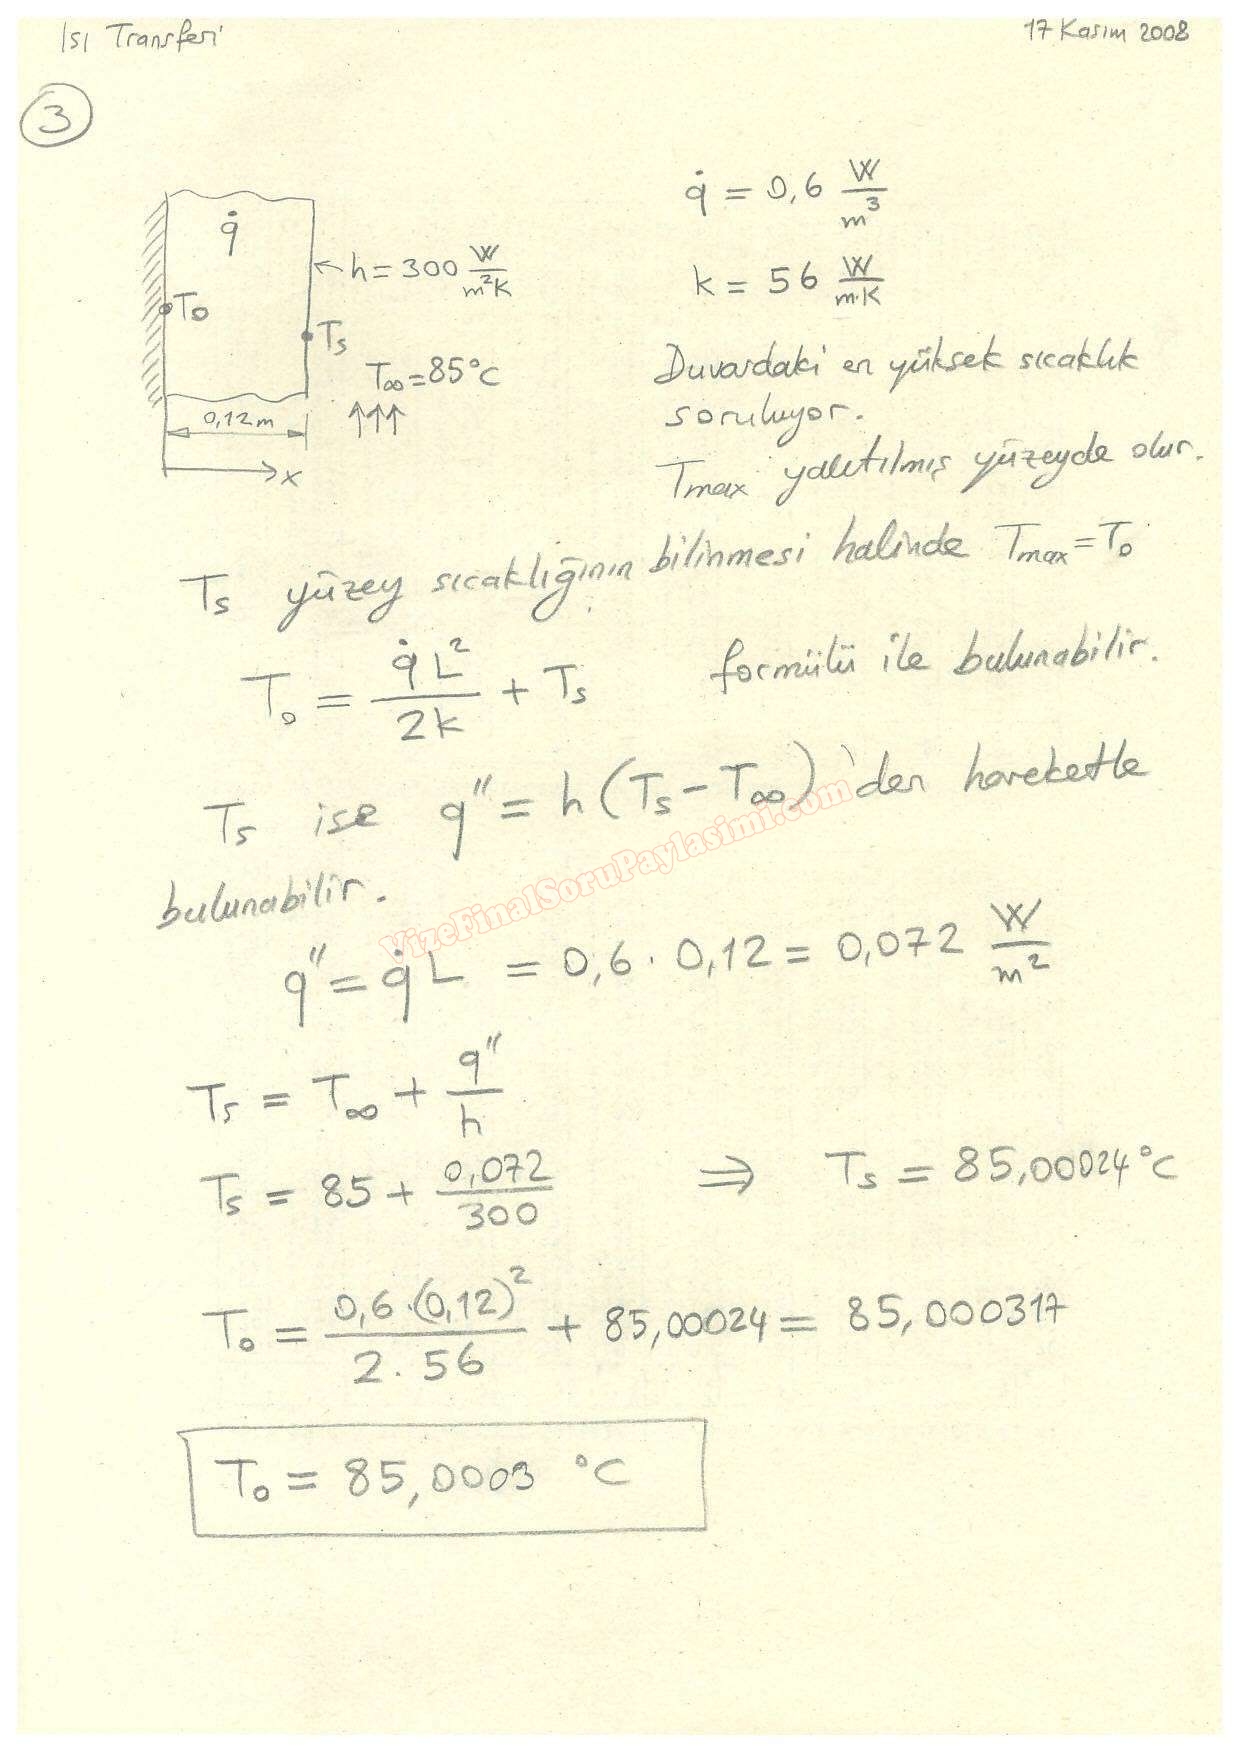 Isı Transferi
17 Kasım 2008
3
q̇
h = 300 W/m²K
T₀
Tₛ
T∞ = 85°C
0,12 m
x
q̇ = 0,6 W/m³
k = 56 W/m·K
Duvardaki en yüksek sıcaklık
soruluyor.
Tmax yalıtılmış yüzeyde olur.
Tₛ yüzey sıcaklığının bilinmesi halinde Tmax = T₀
T₀ = q̇L²/2k + Tₛ formülü ile bulunabilir.
Tₛ ise q″ = h(Tₛ - T∞)'den hareketle
bulunabilir.
VizeFinalSoruPaylasimi.com
q″ = q̇L = 0,6 . 0,12 = 0,072 W/m²
Tₛ = T∞ + q″/h
Tₛ = 85 + 0,072/300 ⇒ Tₛ = 85,00024°C
T₀ = 0,6.(0,12)²/2.56 + 85,00024 = 85,000317
T₀ = 85,0003 °C